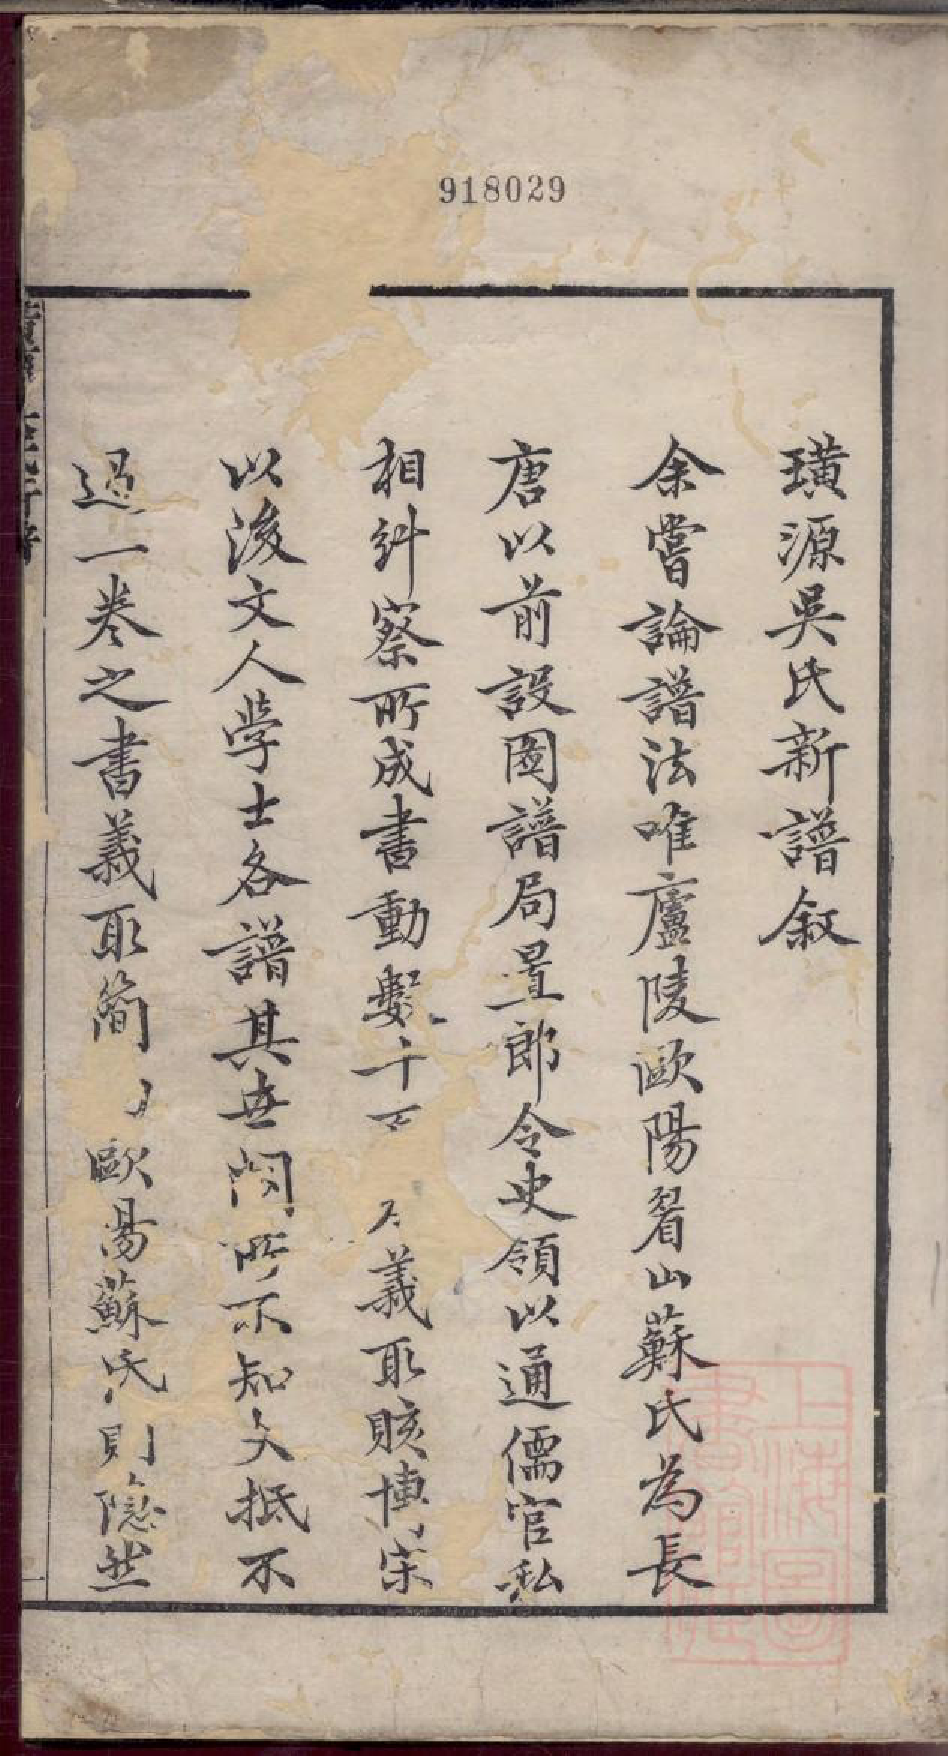 918029
璜源吳氏新譜敘
余嘗論譜法唯廬陵歐陽眉山蘇氏為長
唐以前設圖譜局置郎令史領以通儒官私
相糾察所成書動數十百 義取賅博宋
以後文人學士各譜其世閥所不知文抵不
過一卷之書義取簡 歐陽蘇氏則隱然
上海圖書館藏